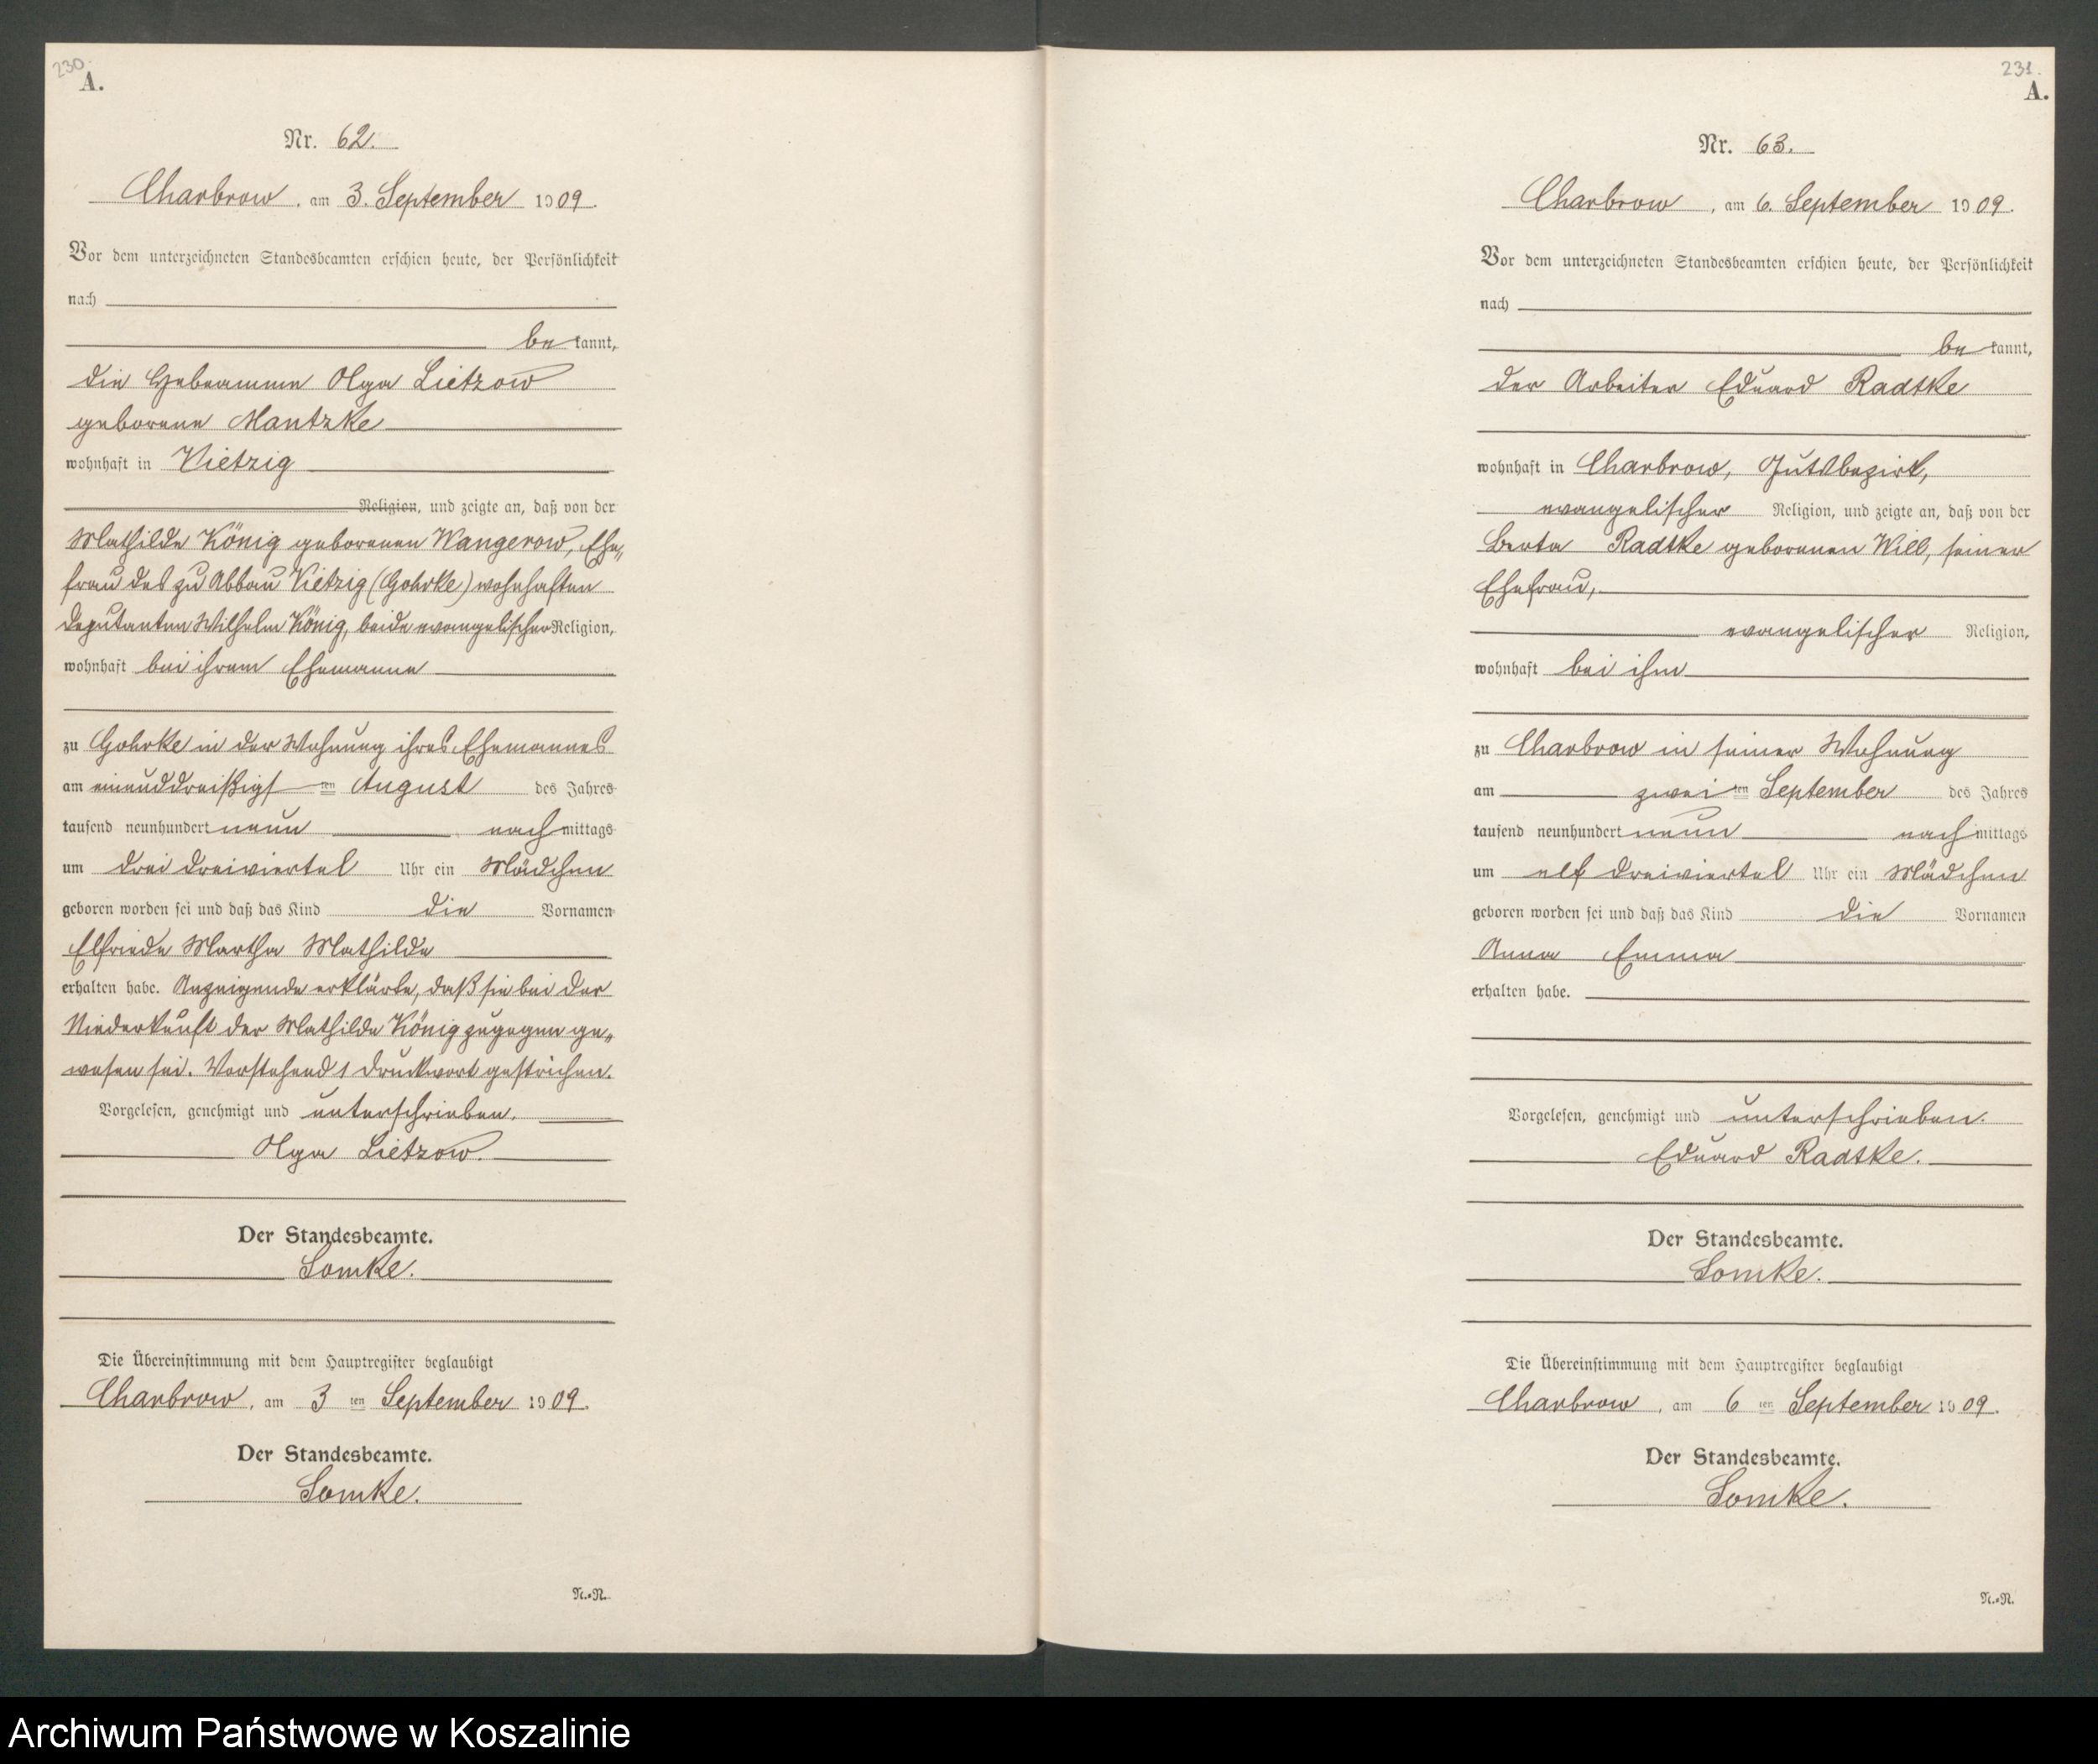 230.
A.
Nr. 62.
Charbrow, am 3. September 1909.
Vor dem unterzeichneten Standesbeamten erschien heute, der Persönlichkeit
nach
be kannt,
die Hebeamme Olga Lietzow
geborene Mantzke
wohnhaft in Vietzig
Religion, und zeigte an, daß von der
Mathilde König geborenen Wangerow, Ehe„
frau des zu Abbau Vietzig (Gohrke) wohnhaften
Deputanten Wilhelm König, beide evangelischer Religion,
wohnhaft bei ihrem Ehemanne
zu Gohrke in der Wohnung ihres Ehemannes
am einunddreißigsten August des Jahres
tausend neunhundert neun nachmittags
um drei dreiviertel Uhr ein Mädchen
geboren worden sei und daß das Kind die Vornamen
Elfriede Martha Mathilde
erhalten habe. Anzeigende erklärte, daß sie bei der
Niederkunft der Mathilde König zugegen ge„
wesen sei. Vorstehend 1 Druckwort gestrichen.
Vorgelesen, genehmigt und unterschrieben.
Olga Lietzow.
Der Standesbeamte.
Lomke.
Die Übereinstimmung mit dem Hauptregister beglaubigt
Charbrow, am 3ten September 1909.
Der Standesbeamte.
Lomke.
N.=R.
231.
A.
Nr. 63.
Charbrow, am 6. September 1909.
Vor dem unterzeichneten Standesbeamten erschien heute, der Persönlichkeit
nach
be kannt,
der Arbeiter Eduard Radtke
wohnhaft in Charbrow, Gutsbezirk,
evangelischer Religion, und zeigte an, daß von der
Berta Radtke geborenen Will, seiner
Ehefrau,
evangelischer Religion,
wohnhaft bei ihm
zu Charbrow in seiner Wohnung
am zweiten September des Jahres
tausend neunhundert neun nachmittags
um elf dreiviertel Uhr ein Mädchen
geboren worden sei und daß das Kind die Vornamen
Anna Emma
erhalten habe.
Vorgelesen, genehmigt und unterschrieben.
Eduard Radtke.
Der Standesbeamte.
Lomke.
Die Übereinstimmung mit dem Hauptregister beglaubigt
Charbrow, am 6ten September 1909.
Der Standesbeamte.
Lomke.
N.=R.
Archiwum Państwowe w Koszalinie